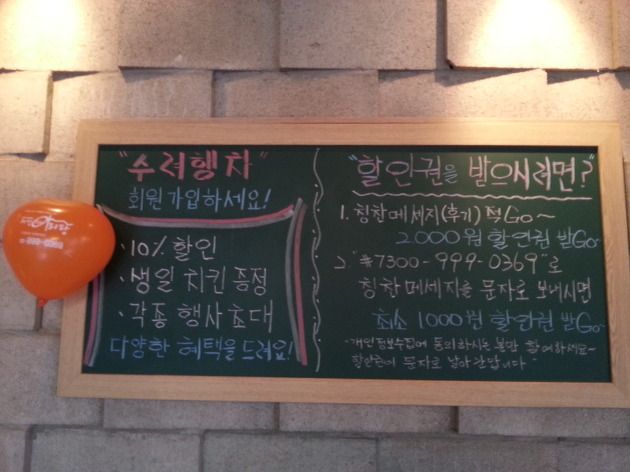 "수려행차"
회원가입하세요!
·10% 할인
·생일 치킨 증정
·각종 행사초대
다양한 혜택을 드려요!
"할인권을 받으시려면?"
1. 칭찬메세지(후기) 적Go~
2000원 할인권 받Go~
2. "#7300-999-0369"로
칭찬 메세지를 문자로 보내시면
최소 1000원 할인권 받Go~
·개인정보수집에 동의하시는 분만 참여하세요~
할인권이 문자로 날아갑니다"